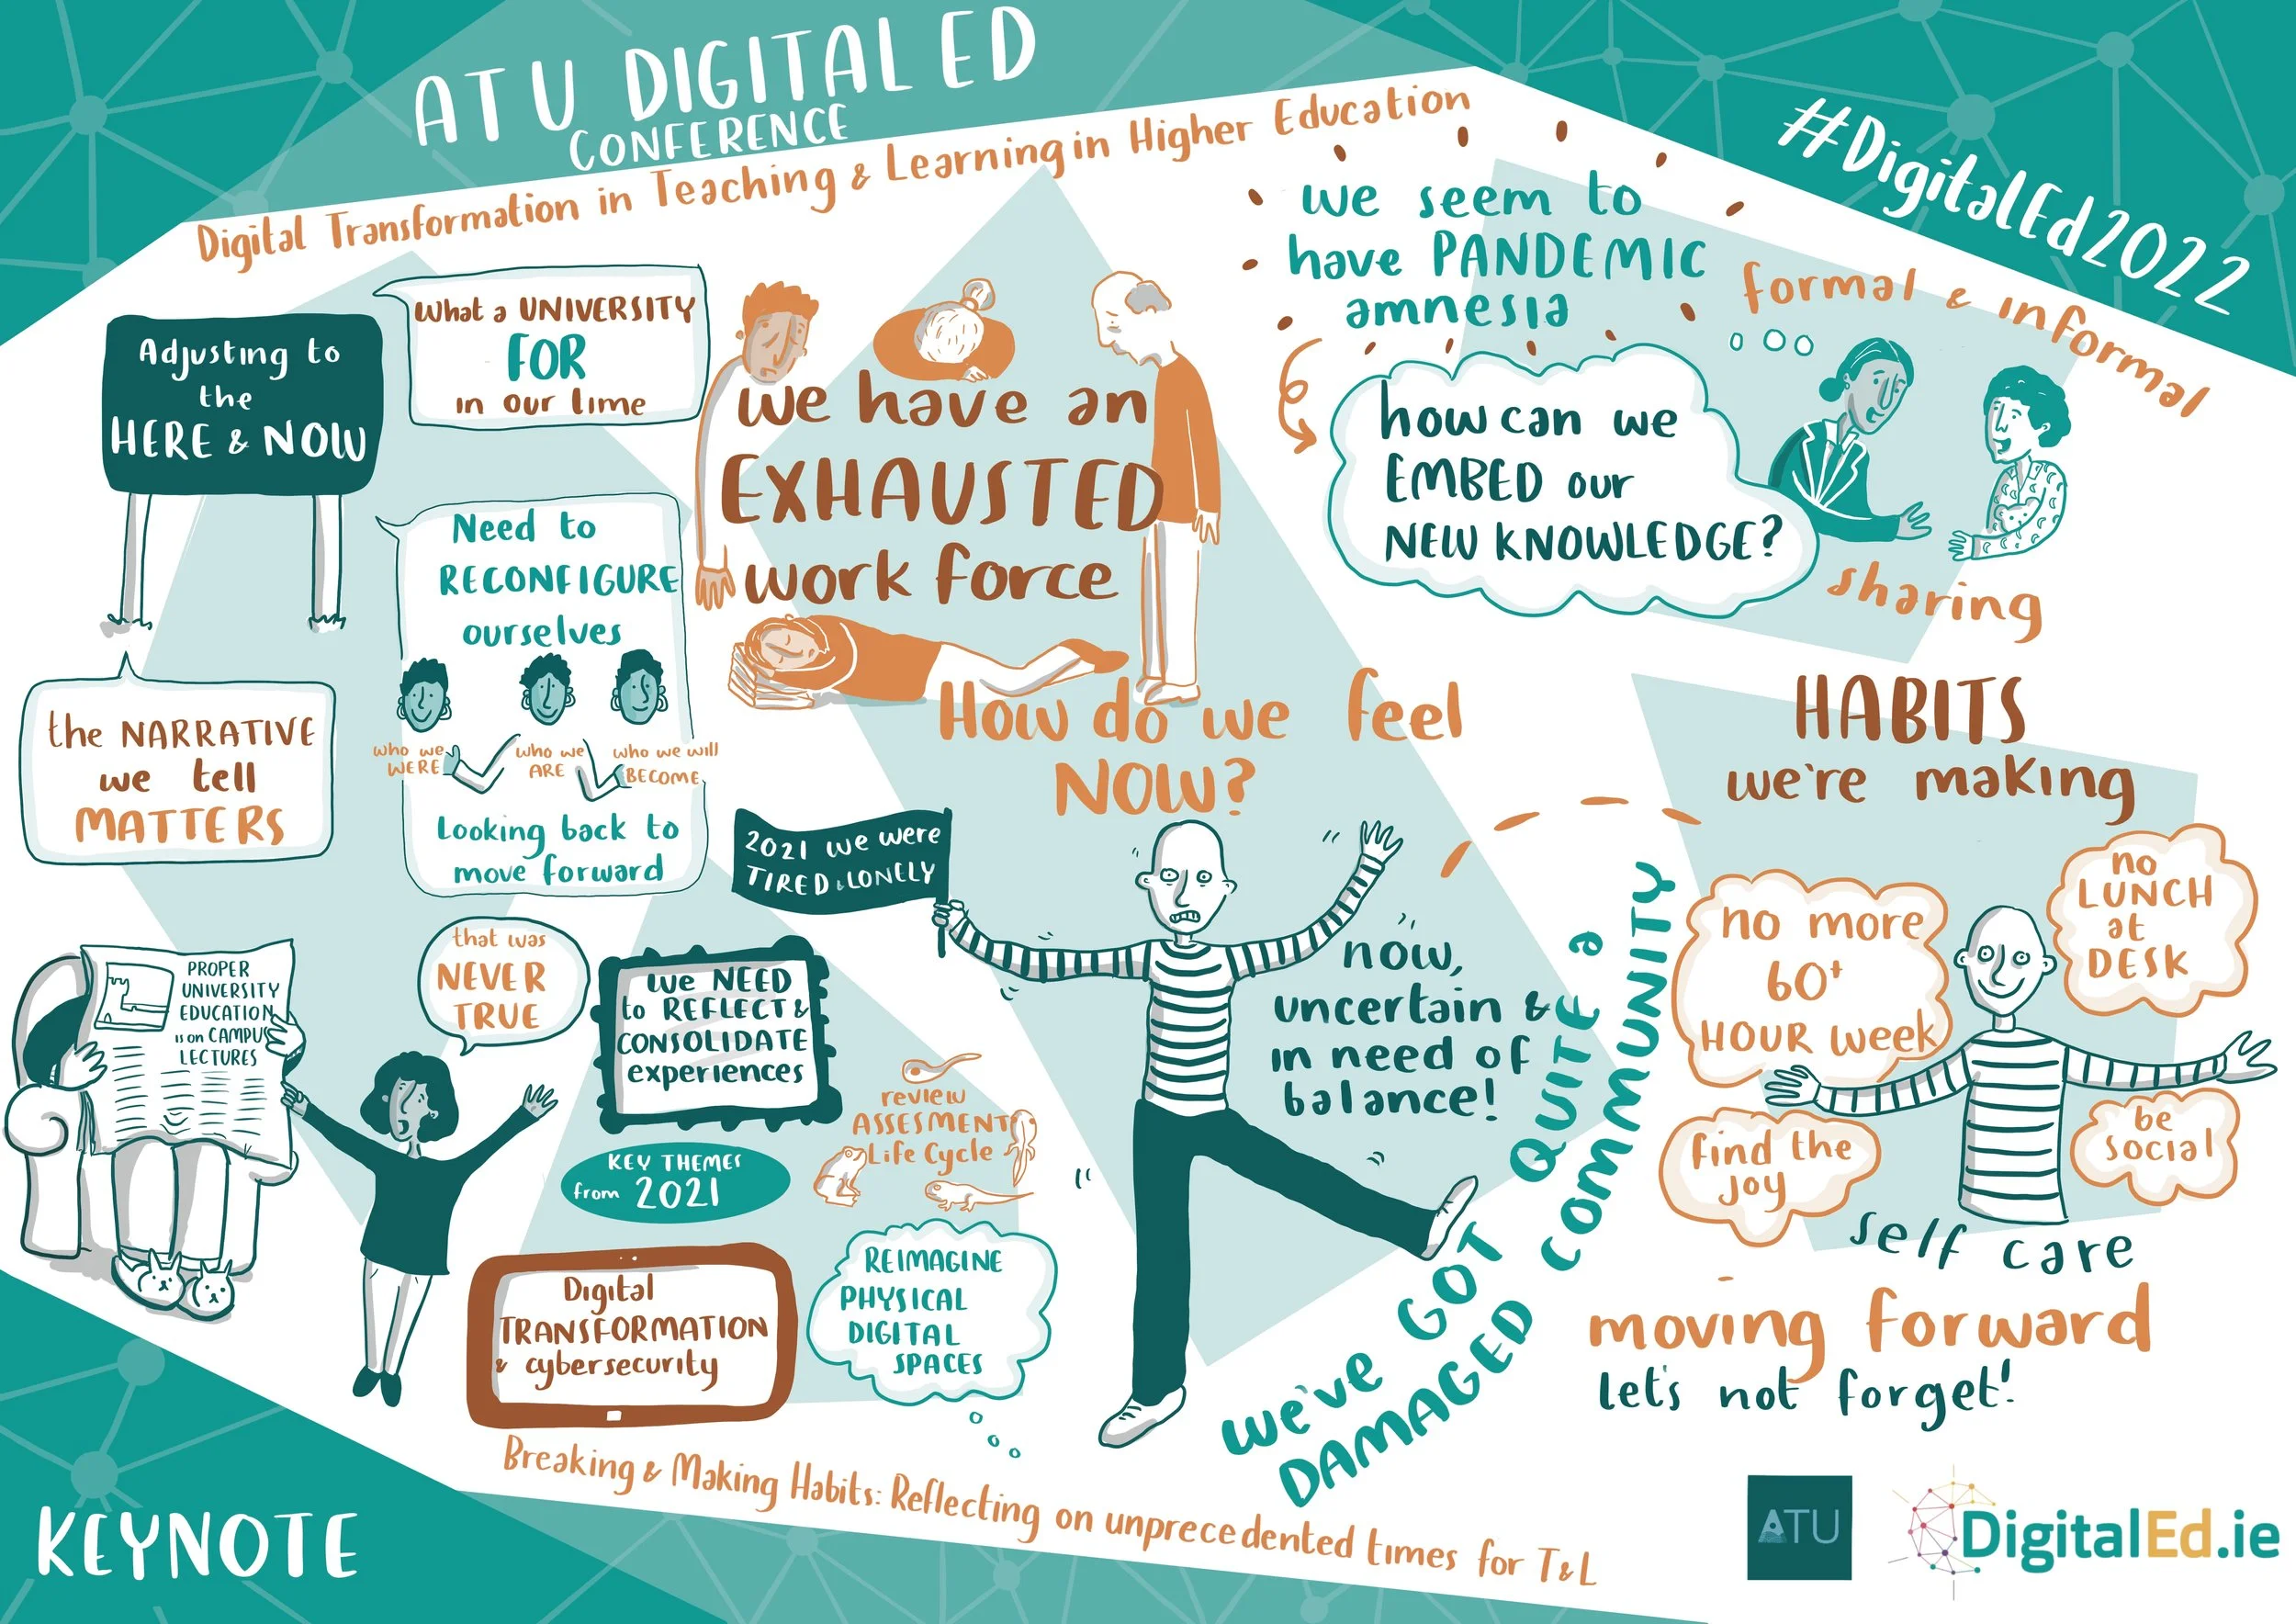 ATU DIGITAL ED
CONFERENCE
Digital Transformation in Teaching & Learning in Higher Education
#DigitalEd2022
Adjusting to
the
HERE & NOW
What a UNIVERSITY
FOR
in our lime
the NARRATIVE
we tell
MATTERS
Need to
RECONFIGURE
ourselves
who we
WERE
who we
ARE
who we will
BECOME
Looking back to
move forward
we have an
EXHAUSTED
work force
we seem to
have PANDEMIC
amnesia
how can we
EMBED our
NEW KNOWLEDGE?
formal & informal
sharing
How do we feel
NOW?
2021 we were
TIRED & LONELY
now,
uncertain &
in need of
balance!
we've GOT QUITE a
DAMAGED COMMUNITY
HABITS
we're making
no more
60+
HOUR week
no
LUNCH
at
DESK
find the
joy
be
social
self care
moving forward
let's not forget!
PROPER
UNIVERSITY
EDUCATION
is on CAMPUS
LECTURES
that was
NEVER
TRUE
we NEED
to REFLECT &
CONSOLIDATE
experiences
KEY THEMES
from 2021
review
ASSESMENT
Life Cycle
Digital
TRANSFORMATION
& cybersecurity
REIMAGINE
PHYSICAL
DIGITAL
SPACES
Breaking & Making Habits: Reflecting on unprecedented times for T&L
KEYNOTE
ATU
DigitalEd.ie